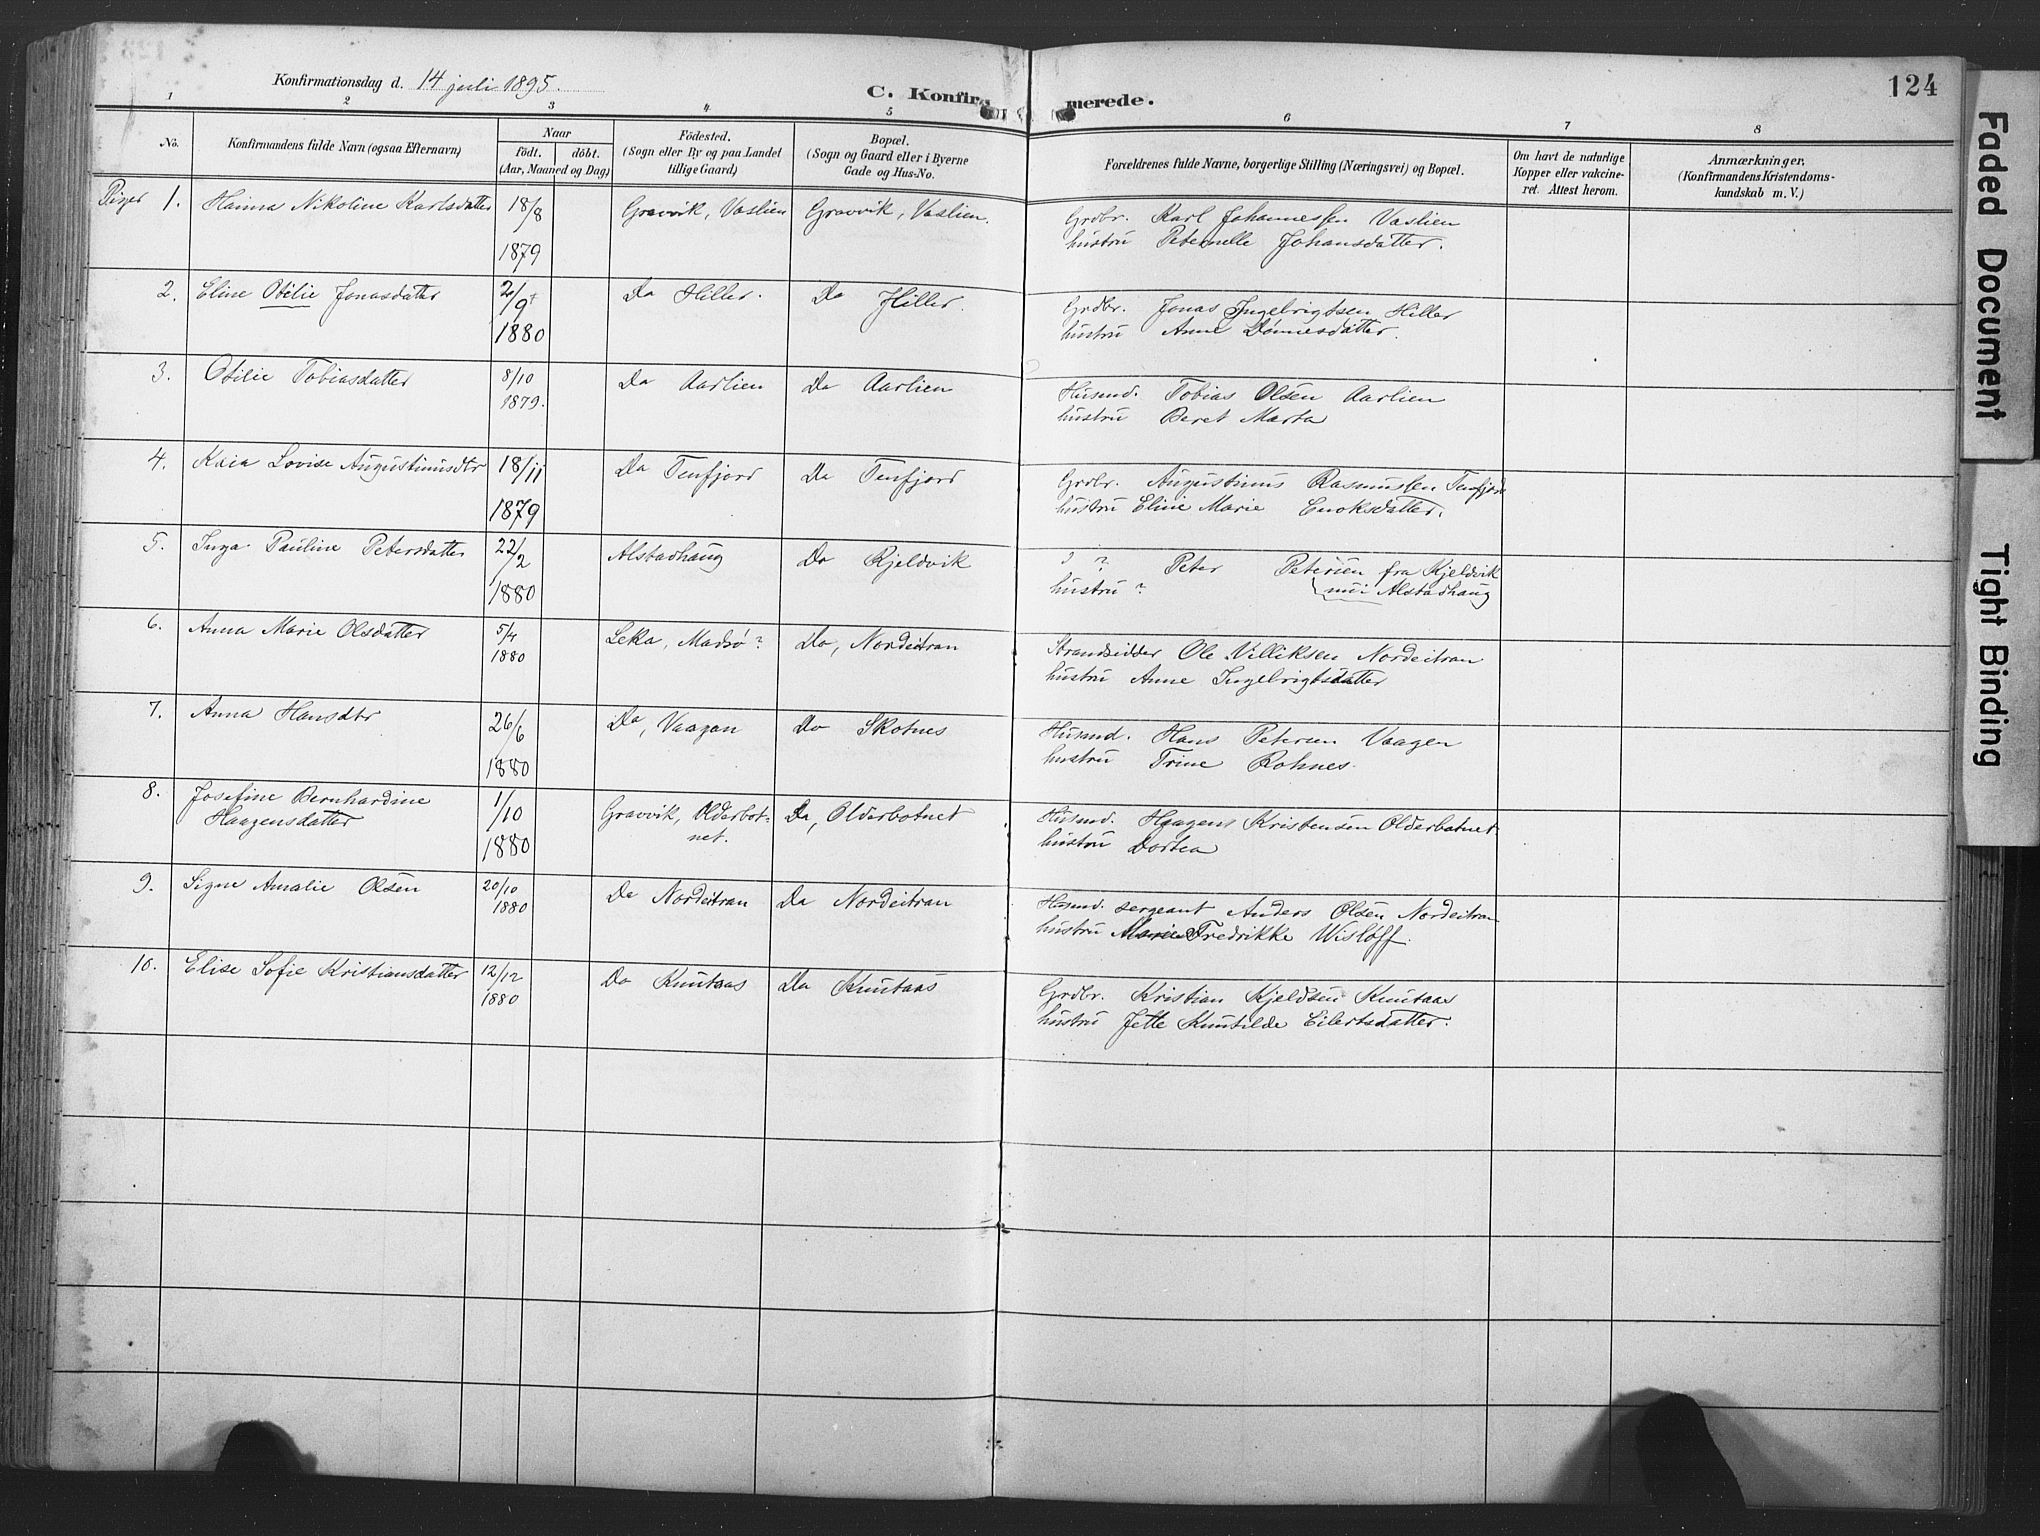 124
Konfirmationsdag d. 14 juli 1895.
C. Konfirmerede.
1 2 3 4 5 6 7 8
No.
Konfirmandens fulde Navn (ogsaa Efternavn)
Naar
født. døbt.
(Aar, Maaned og Dag)
Fødested.
(Sogn eller By og paa Landet
tillige Gaard)
Bopæl.
(Sogn og Gaard eller i Byerne
Gade og Hus-No.
Forældrenes fulde Navne, borgerlige Stilling (Næringsvei) og Bopæl.
Om havt de naturlige
Kopper eller vakcine-
ret. Attest herom.
Anmærkninger,
(Konfirmandens Kristendoms-
kundskab m. V.)
Piger 1. Hanna Nikoline Karlsdatter 18/8 1879 Gravvik, Vaslien Gravvik, Vaslien.
Grdbr. Karl Johannessen Vaslien
hustru Peternelle Johansdatter.
2. Eline Otilie Jonasdatter 2/9 1880 Do Hiller. Do Hiller.
Grdbr. Jonas Ingebrigtsen Hiller
hustru Anne Dønnesdatter.
3. Otilie Tobiasdatter 8/10 1879. Do Aarlien Do Aarlien
Husmd. Tobias Olsen Aarlien
hustru Beret Marta
4. Kaia Lovise Augustinusdtr 18/11 1879 Do Tenfjord Do Tenfjord
Grdbr. Augustinus Rasmussen Tenfjord
hustru Eline Marie Enoksdatter.
5. Inga Pauline Petersdatter 22/2 1880 Alstadhaug Do Kjeldvik
? ? Peter Petersen fra Kjeldvik
hustru ? nu i Alstadhaug
6. Anna Marie Olsdatter 5/4 1880 Leka, Madsø? Do, Nordeitran
Strandsidder Ole Villiksen Nordeitran
hustru Anne Ingebrigtsdatter
7. Anna Hansdtr 26/6 1880 Do, Vaagan Do Skotnes
Husmd. Hans Petersen Vaagen
hustru Trine Rohnes.
8. Josefine Bernhardine 1/10 1880 Gravvik, Olderbot- Do, Olderbotnet
Haagensdatter net.
Husmd. Haagens Kristensen Olderbotnet
hustru Dortea
9. Signe Amalie Olsen 20/10 1880 Do Nordeitran Do Nordeitran
Husmd. sergeant Anders Olsen Nordeitran
hustru Fredrikke Wisløff.
10. Elise Sofie Kristiansdatter 12/12 1880 Do Knutaas Do Knutaas
Grdbr. Kristian Kjeldsen Knutaas
hustru Jette Knutilde Eilertsdatter.
Faded Document
Tight Binding